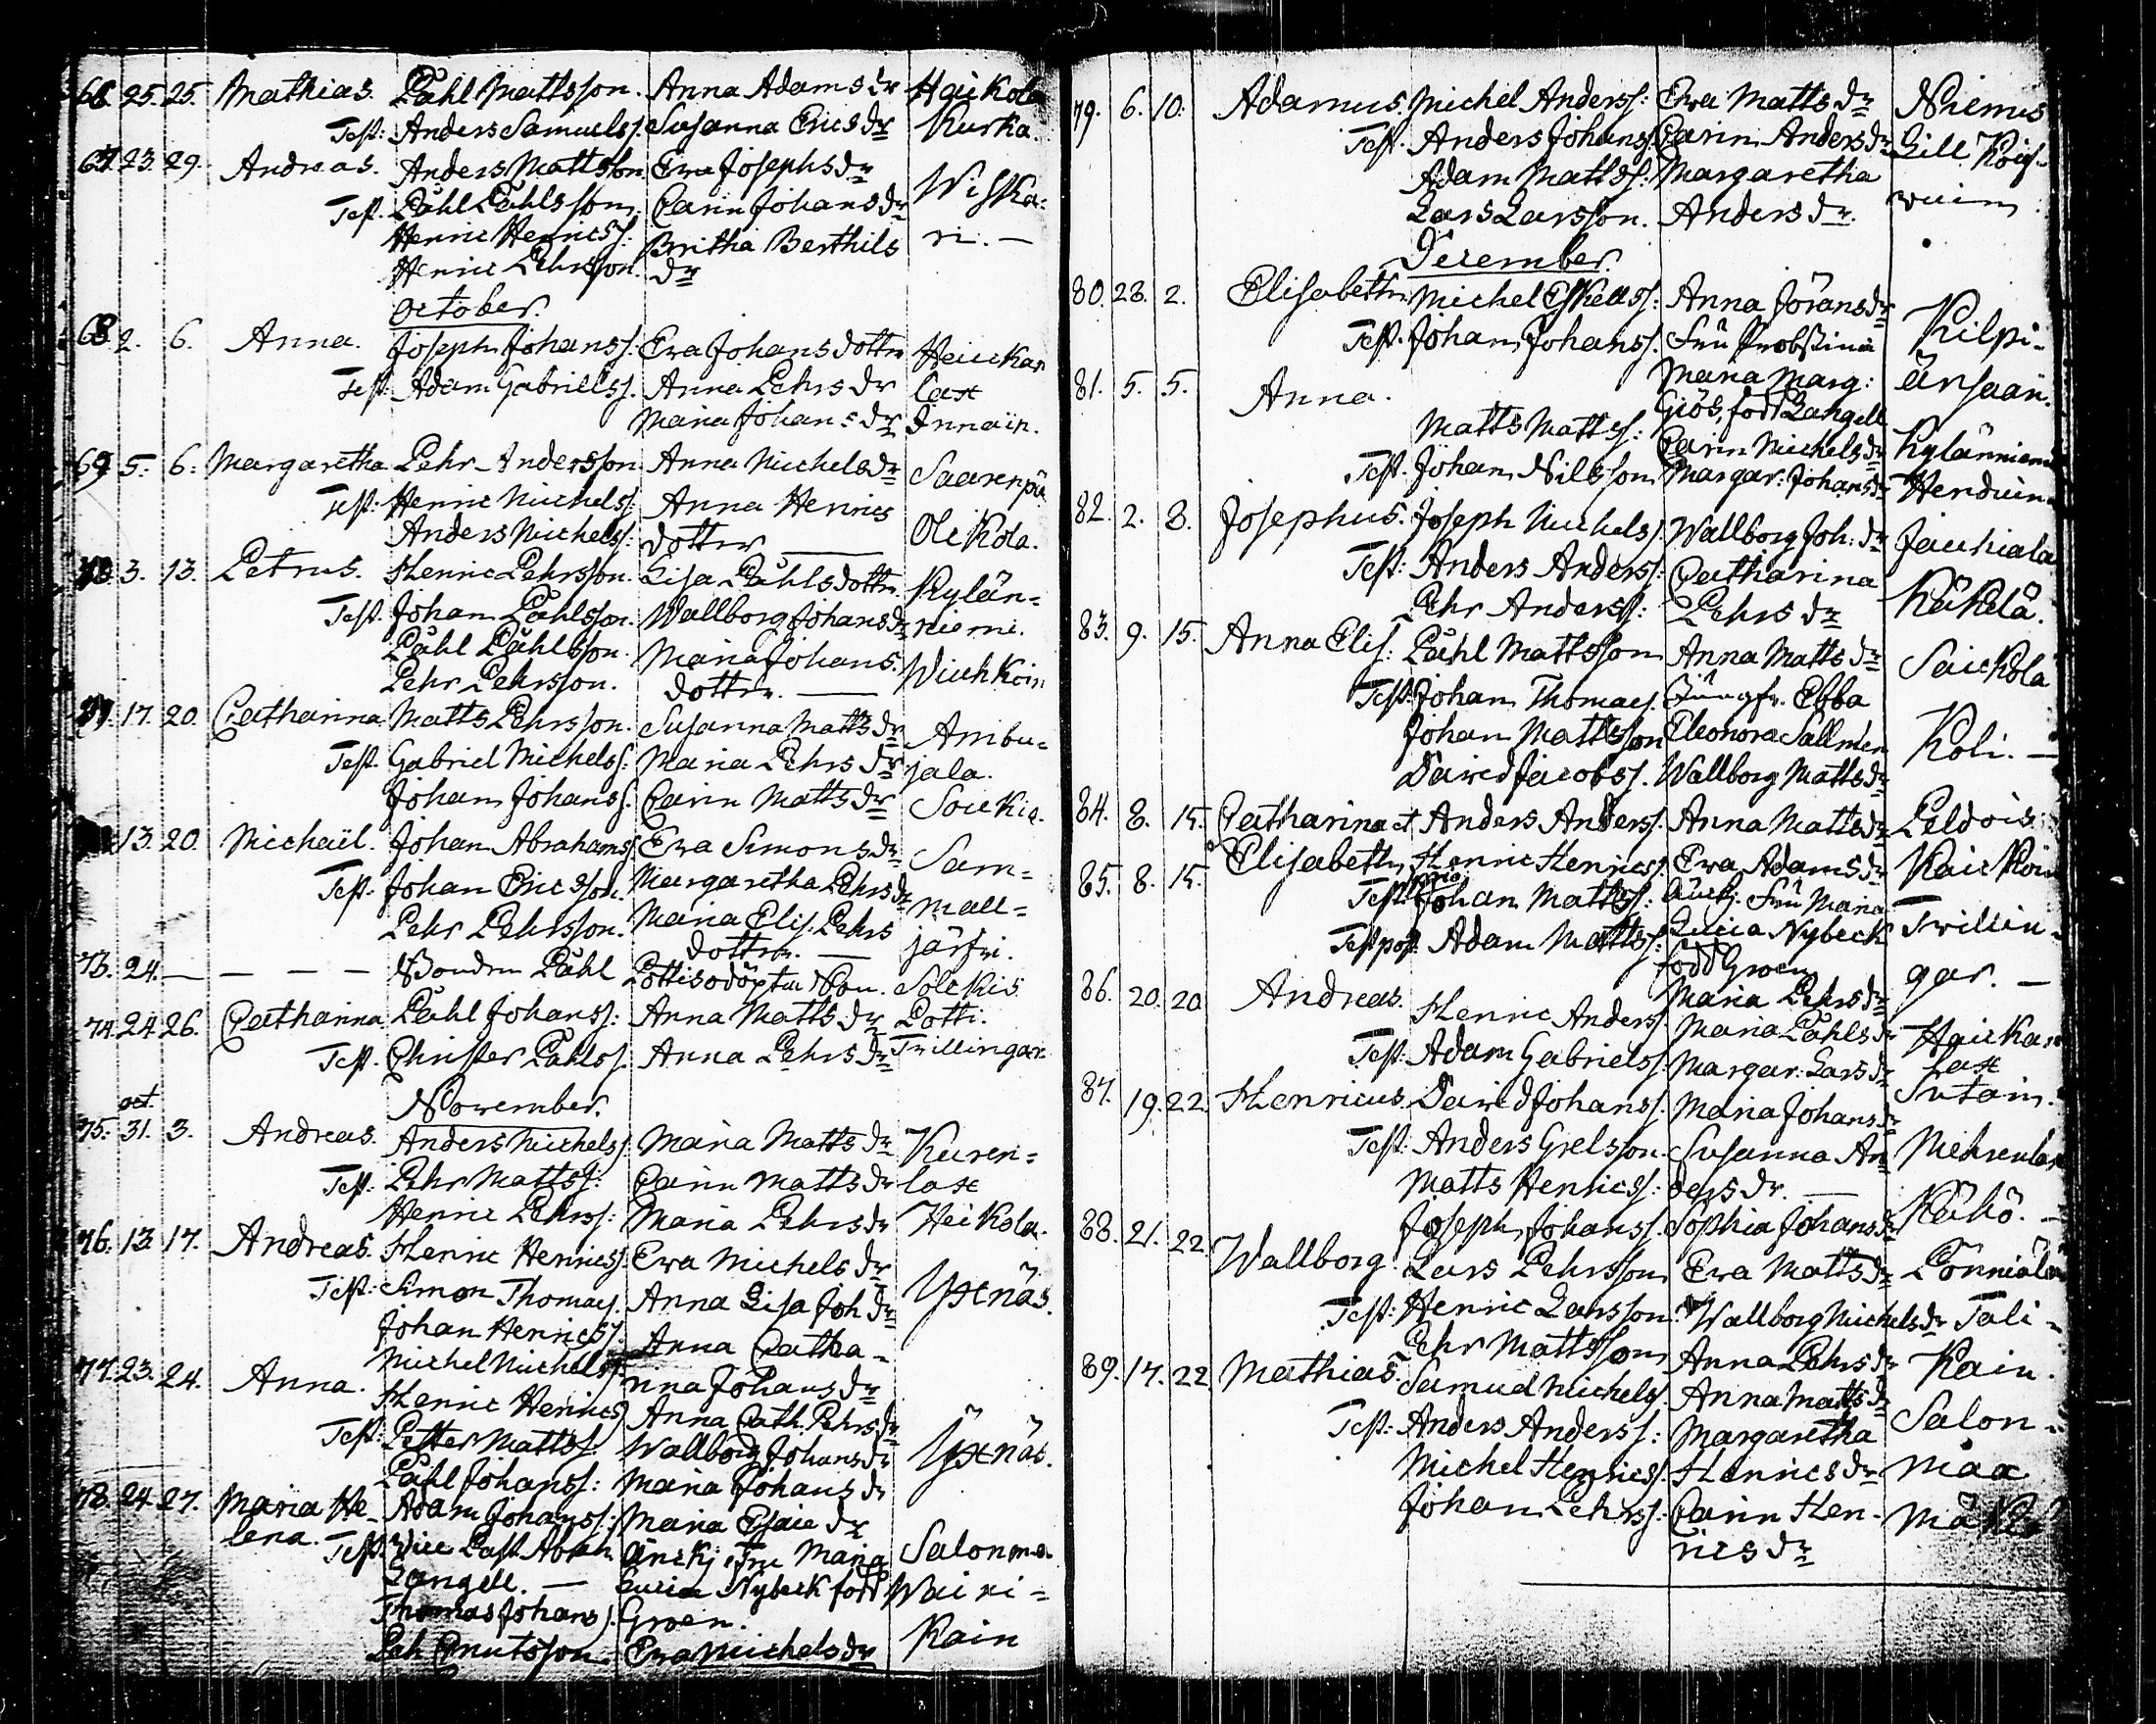 66. 25. 25. Mathias. Påhl Mattsson. Anna Adams dr Haikola
Test: Anders Samuelss. Susanna Erics dr Kurka.
67. 23. 29. Andreas. Anders Mattsson Eva Josephs dr Wiska-
Test. Påhl Påhlsson. Carin Johans dr ri. —
Henric Henricss: Britha Berthils
Henric Pehrsson. dr
October.
68. 2. 6. Anna. Joseph Johanss: Eva Johansdottr Heickar
Test: Adam Gabrielss. Anna Pehrs dr laxt
Maria Johans dr Innain.
69. 5. 6. Margaretha Pehr Andersson Anna Michelsdr Saarenpä
Test: Henric Michelss: Anna Henrics
Anders Michelss: dottr — Oikola.
3. 13. Petrus. Henric Pehrsson. Lisa Påhlsdottr Kylän-
Test. Johan Påhlsson. Wallborg Johans dr niemi.
Påhl Påhlsson. Maria Johans Wichkoin
Pehr Pehrsson. dottr. —
17. 20. Catharina Matts Pehrsson. Susanna Matts dr Ambu-
Test. Gabriel Michelss: Maria Pehrs dr jala.
Johan Johanss. Carin Matts dr Soukia.
13. 20. Michaël. Johan Abrahamss. Eva Simons dr Sam-
Test: Johan Ericsson. Margaretha Pehrs dr mall-
Pehr Pehrsson. Maria Elis. Pehrs
dottr. — järfvi.
73. 24. — — — — Bonden Påhl Pottis odöpta Son. Solckis
74. 24 26. Catharina Påhl Johanss: Anna Matts dr Potti.
Test. Christer Påhlss. Anna Pehrs dr Trillingar.
November.
oct.
75. 31. 3. Andreas. Anders Michelss. Maria Matts dr Kuren-
Test: Pehr Mattss: Carin Matts dr laxt
Henric Pehrss: Maria Pehrs dr Heikola.
76. 13. 17. Andreas. Henric Henricss. Eva Michels dr Yxtnäs.
Test: Simon Thomass. Anna Lisa Joh dr
Johan Henricss. Anna Catha-
Michel Michelss. rina Johans dr
77. 23. 24. Anna. Henric Henricss. Anna Cath. Pehrs dr
Test: Petter Mattss. Wallborg Johans dr Yxtnäs.
Påhl Johanss: Maria Johans dr
78. 24. 27. Maria He- Adam Johanss: Maria Esaie dr
lena. Test. Vice Past Abrah. Änckj. Fru Maria Salonma.
Langell. — Lucia Nybeck född Wairi-
Thomas Johanss. Groen.
Peh Cnutsson. Eva Michels dr kain
79. 6. 10. Adamus. Michel Anderss: Eva Matts dr Niemis
Test. Anders Johanss. Carin Anders dr Lill Koif-
Adam Mattss: Margaretha
Lars Larsson. Anders dr.
December.
80. 28. 2. Elisabeth Michel Eskellss: Anna Jörans dr Kilpi-
Test. Johan Johanss. Fru Probstinna
Maria Marg: änsaari.
81. 5. 5. Anna. Giös, född Langell
Matts Mattss: Carin Michels dr Kylänniemi
Test. Johan Nilsson, Margar. Johans dr Henduin
82. 2. 8. Josephus. Joseph Michelss. Wallborg Joh: dr Jackiala
Test: Anders Anderss: Catharina
Pehr Anderss: Pehrs dr Käkelä.
83. 9. 15. Anna Elis: Påhl Mattsson Anna Matts dr Saickola
Test. Johan Thomass. Jungfr. Ebba
Johan Mattsson Eleonora Sallmén Koli. —
David Jacobss. Wallborg Matts dr
84. 8. 15. Catharina et Anders Anderss. Anna Matts dr Peldois
85. 8. 15. Elisabeth, Henric Henricss. Eva Adams dr Kaickoi
Test. Johan Mattss: Änckj. Fru Maria
Lucia Nybeck Twillin-
Test post Adam Mattss: född Groen gar. —
86. 20. 20 Andreas. Henric Anderss. Maria Pehrs dr
Maria Påhls dr Haickar
Test: Adam Gabrielss. Margar: Lars dr laxt
87. 19. 22. Henricus. David Johanss. Maria Johans dr Sutain.
Test: Anders Grelsson. Susanna An- Mehrenlax
Matts Henricss: ders dr. —
88. 21. 22. Wallborg. Joseph Johanss. Sophia Johans dr Kähö. —
Lars Pehrsson, Eva Matts dr
Test: Henric Larsson. Wallborg Michels dr Tali-
Pehr Mattsson, Anna Pehrs dr Kain.
89. 14. 22. Mathias. Samuel Michelss. Anna Matts dr Salon-
Test: Anders Anderss: Margaretha
Michel Henricss. Henrics dr maa
Johan Pehrss: Carin Hen-
rics dr